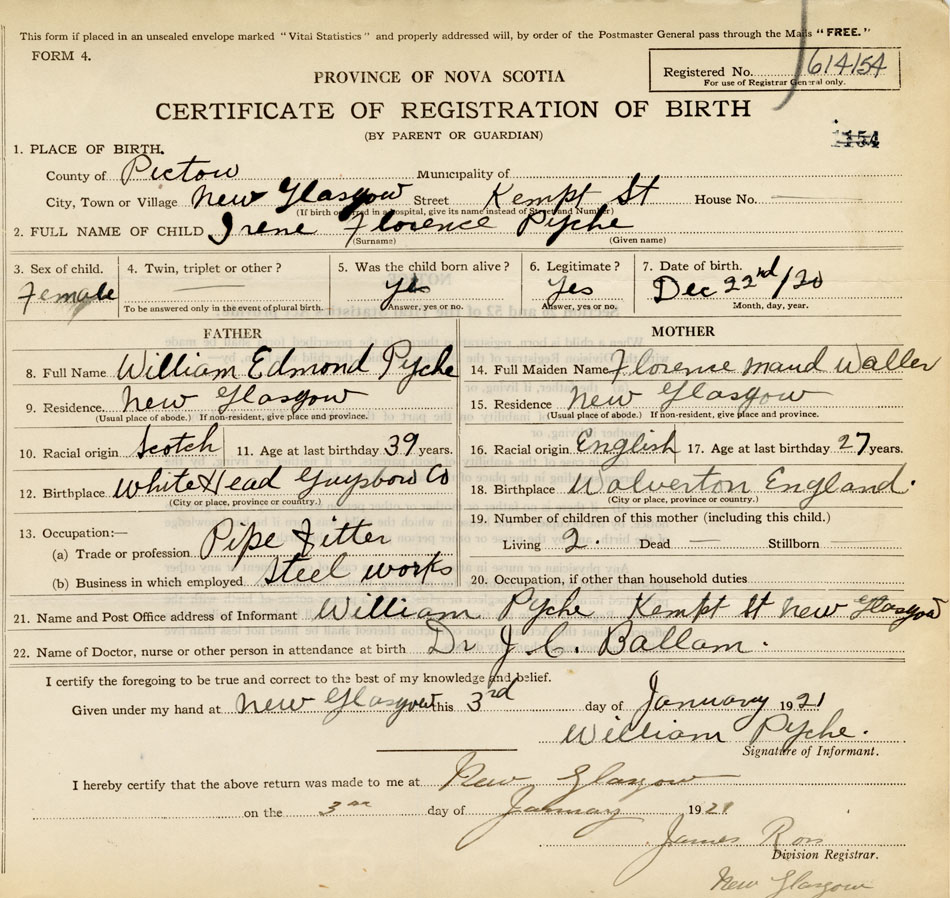 This form if placed in an unsealed envelope marked "Vital Statistics" and properly addressed will, by order of the Postmaster General pass through the Mails "FREE."
FORM 4.
PROVINCE OF NOVA SCOTIA
Registered No. 614154
For use of Registrar General only.
CERTIFICATE OF REGISTRATION OF BIRTH
(BY PARENT OR GUARDIAN)
154
1. PLACE OF BIRTH.
County of Pictou Municipality of
City, Town or Village New Glasgow Street Kempt St House No.
(If birth occurred in a hospital, give its name instead of Street and Number)
2. FULL NAME OF CHILD Irene Florence Pyche
(Surname) (Given name)
3. Sex of child. 4. Twin, triplet or other? 5. Was the child born alive? 6. Legitimate? 7. Date of birth.
Female Yes Yes Dec 22nd/20
To be answered only in the event of plural birth. Answer, yes or no. Answer, yes or no. Month, day, year.
FATHER MOTHER
8. Full Name William Edmond Pyche 14. Full Maiden Name Florence Maud Waller
9. Residence. New Glasgow 15. Residence New Glasgow
(Usual place of abode.) If non-resident, give place and province. (Usual place of abode.) If non-resident, give place and province.
10. Racial origin Scotch 11. Age at last birthday 39 years. 16. Racial origin English 17. Age at last birthday 27 years.
12. Birthplace White Head Guysboro Co 18. Birthplace Walverton England.
(City or place, province or country.) (City or place, province or country.)
13. Occupation:— 19. Number of children of this mother (including this child.)
(a) Trade or profession Pipe Fitter Living 2. Dead — Stillborn
(b) Business in which employed Steel works 20. Occupation, if other than household duties
21. Name and Post Office address of Informant William Pyche Kempt St New Glasgow
22. Name of Doctor, nurse or other person in attendance at birth Dr J. C. Ballam.
I certify the foregoing to be true and correct to the best of my knowledge and belief.
Given under my hand at New Glasgow this 3rd day of January 1921
William Pyche.
Signature of Informant.
I hereby certify that the above return was made to me at New Glasgow
on the 3rd day of January 1921
James Ross
Division Registrar.
New Glasgow